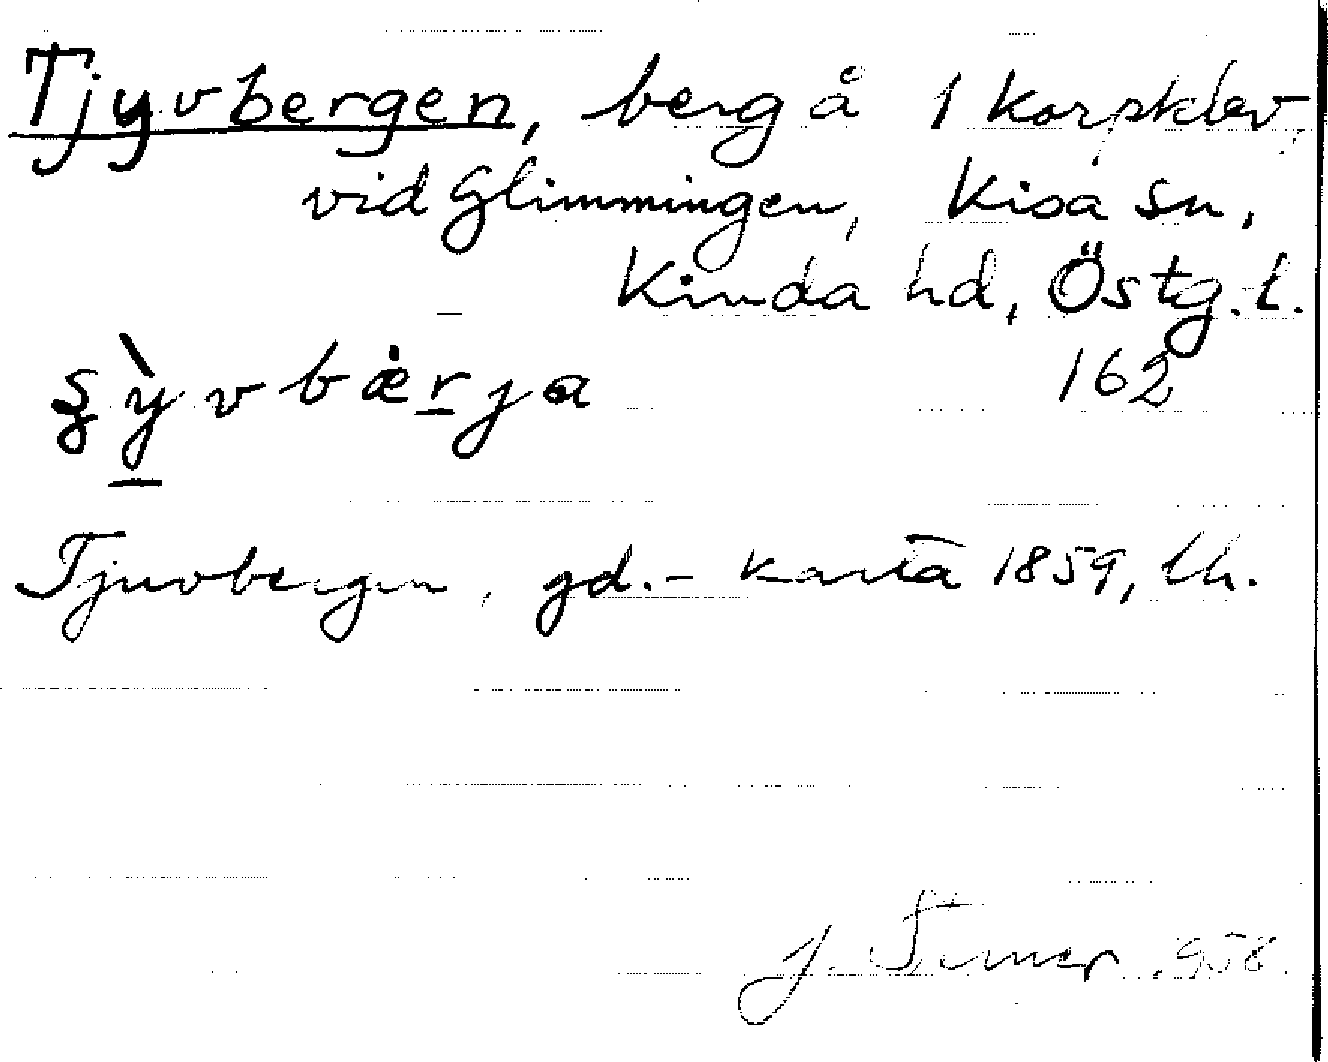 Tjyvbergen, berg å 1 Korpklev
vid Glimmingen, Kisa sn,
Kinda hd, Östg. l.
162
Tjuvbergen, gd.- karta 1859, lh.
J.